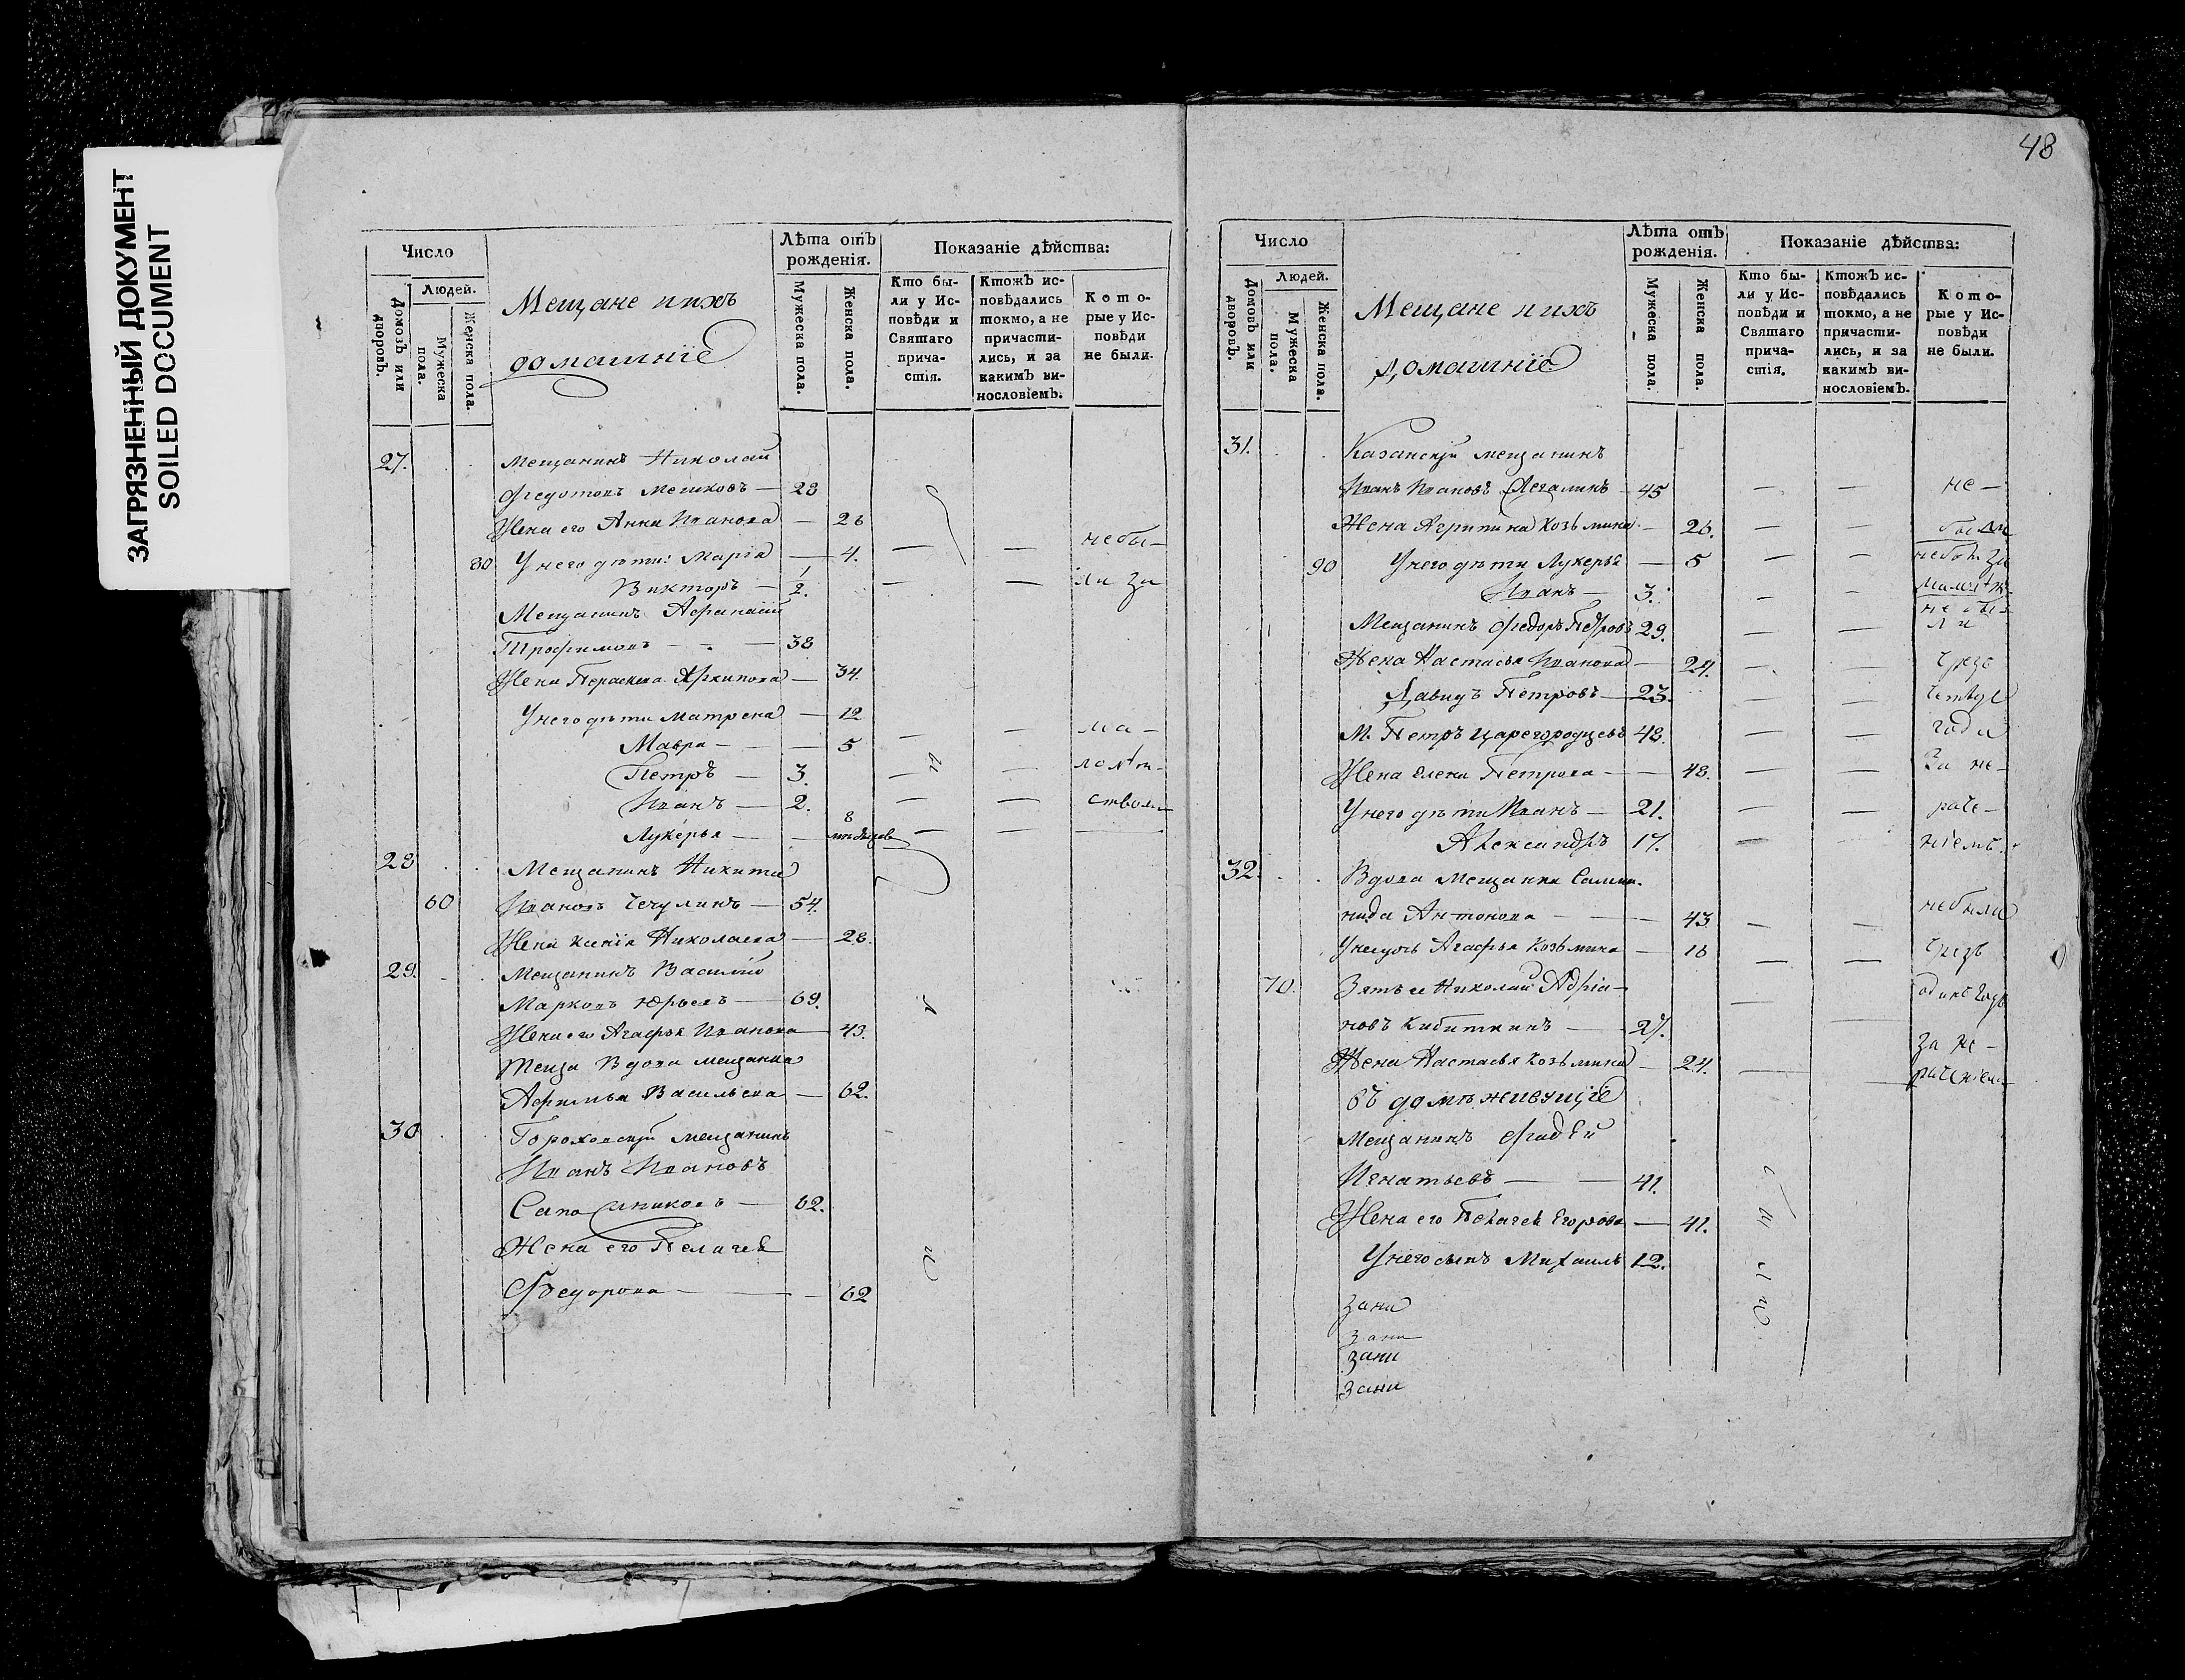 ЗАГРЯЗНЕННЫЙ ДОКУМЕНТ
SOILED DOCUMENT
Число
Людей.
Домовъ или дворовъ.
Мужеска пола.
Женска пола.
Мещане ихъ
домашніе
Лѣта отъ рожденія.
Мужеска пола.
Женска пола.
Показаніе дѣйства:
Кто были у Исповѣди и Святаго причастія.
Ктожъ исповѣдались токмо, а не причастились, и за какимъ винословіемъ.
Которые у Исповѣди не были.
27. Мещанинъ Николай
Федотовъ — 28
Жена его Анна Иванова — 26
80 У него дѣти: Марія — 4. — — не бы-
Викторъ — 2. — — ли за
Мещанинъ Афанасій
Трофимовъ — 38
Жена Параскева Архипова — 34.
У него дѣти Матрена — 12
Мавра — — 5 — — ма-
Петръ — 3. — — лолѣт-
Иванъ — 2. — — ством
Лукерья — — 8 мѣсяцов — — —
28 Мещанинъ Никита
60 Ивановъ Чечулинъ — 54.
Жена Ксенія Николаева — 28.
29. Мещанинъ Василій
Марковъ Юрьевъ — 69.
Жена его Агафья Иванова — 43.
Теща Вдова мещанка
Афимья Васильева — 62.
30 Гороховскій мещанинъ
Иванъ Ивановъ
Сапожниковъ — 62.
Жена его Пелагея
Федорова — 62
48
Число
Людей.
Домовъ или дворовъ.
Мужеска пола.
Женска пола.
Мещане ихъ
домашніе
Лѣта отъ рожденія.
Мужеска пола.
Женска пола.
Показаніе дѣйства:
Кто были у Исповѣди и Святаго причастія.
Ктожъ исповѣдались токмо, а не причастились, и за какимъ винословіемъ.
Которые у Исповѣди не были.
31. Казанскій мещанинъ
Иванъ Ивановъ — 45 — — не —
Жена Агрипина Козьмина — 26. — — были
90 У него дѣти Лукерья — 5 — — за
Иванъ — 3. — —
Мещанинъ Федоръ Петровъ 29. — — ли
Жена Настасья Иванова — 24. — — чрезъ
Давидъ Петровъ — 23. — —
М. Петръ Царегородцевъ 48. — — года
Жена Елена Петрова — — 48. — — За не-
У него дѣти Иванъ — 21. — — раче-
Александръ 17. — — ніемъ.
32. Вдова Мещанка Саломо-
нида Антонова — — 43 — не были
У нее дочь Агафья Козьмина — 18 — — чрезъ
70. Зять ее Николай Адріа- — одинъ годъ
новъ Кибиткинъ — 27. —
за не —
Жена Настасья Козьмина — 24. — — раченіем
въ домѣ живущіе
Мещанинъ Фадѣй
Игнатьевъ — — 41.
Жена его Пелагея Егорова — 41.
У него сынъ Михаилъ 12.
зани
зани
зани
зани